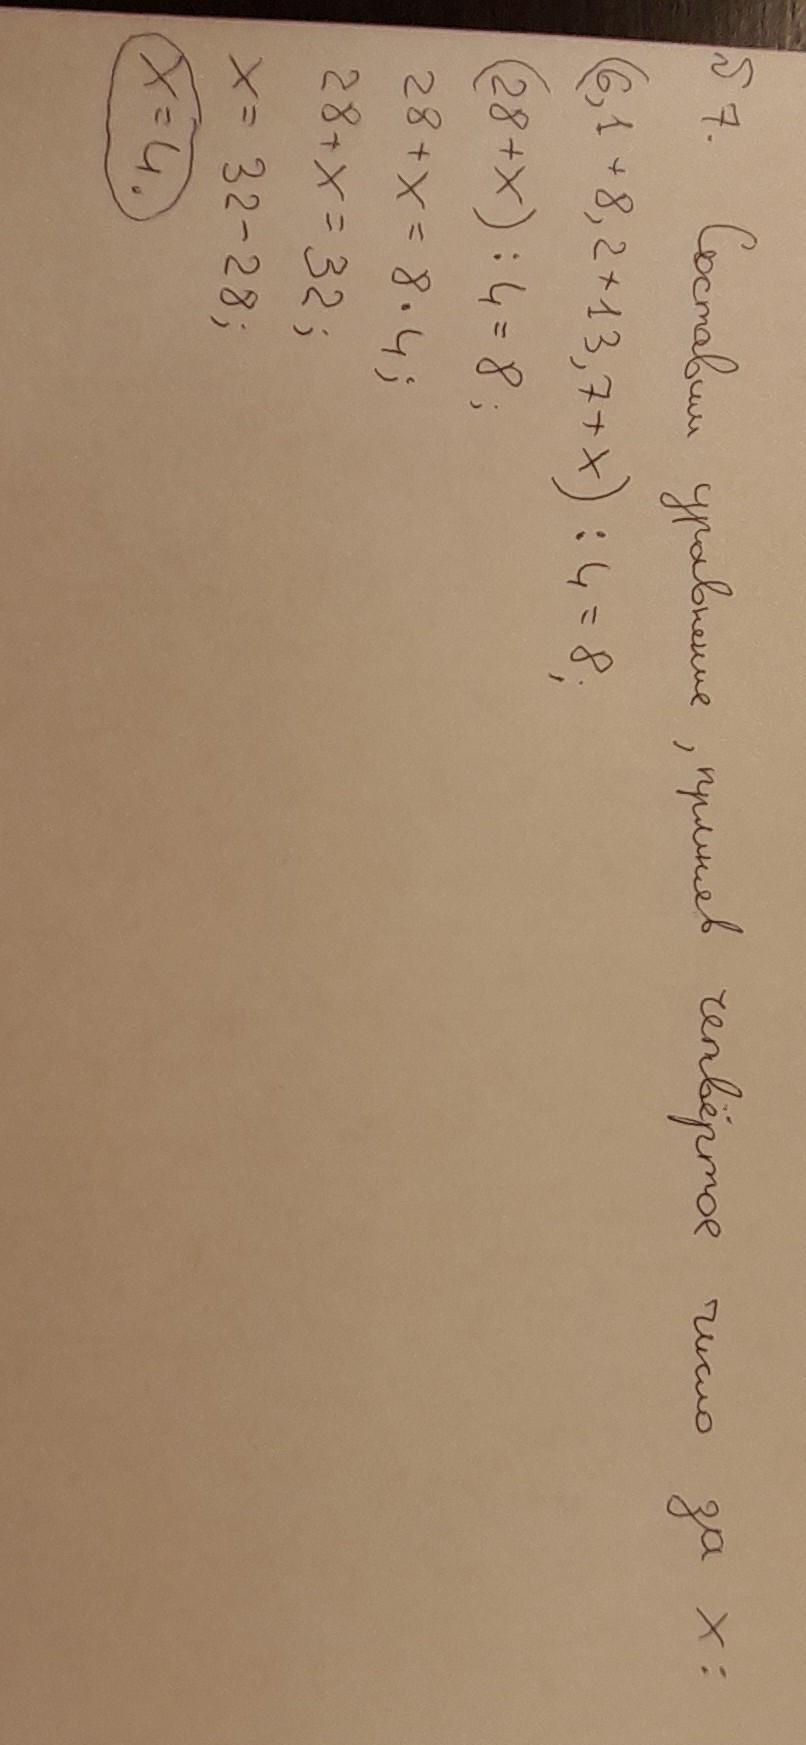 №7. Составим уравнение, приняв четвёртое число за x:
(6,1+8,2+13,7+x):4=8;
(28+x):4=8;
28+x=8·4;
28+x=32;
x=32-28;
x=4.